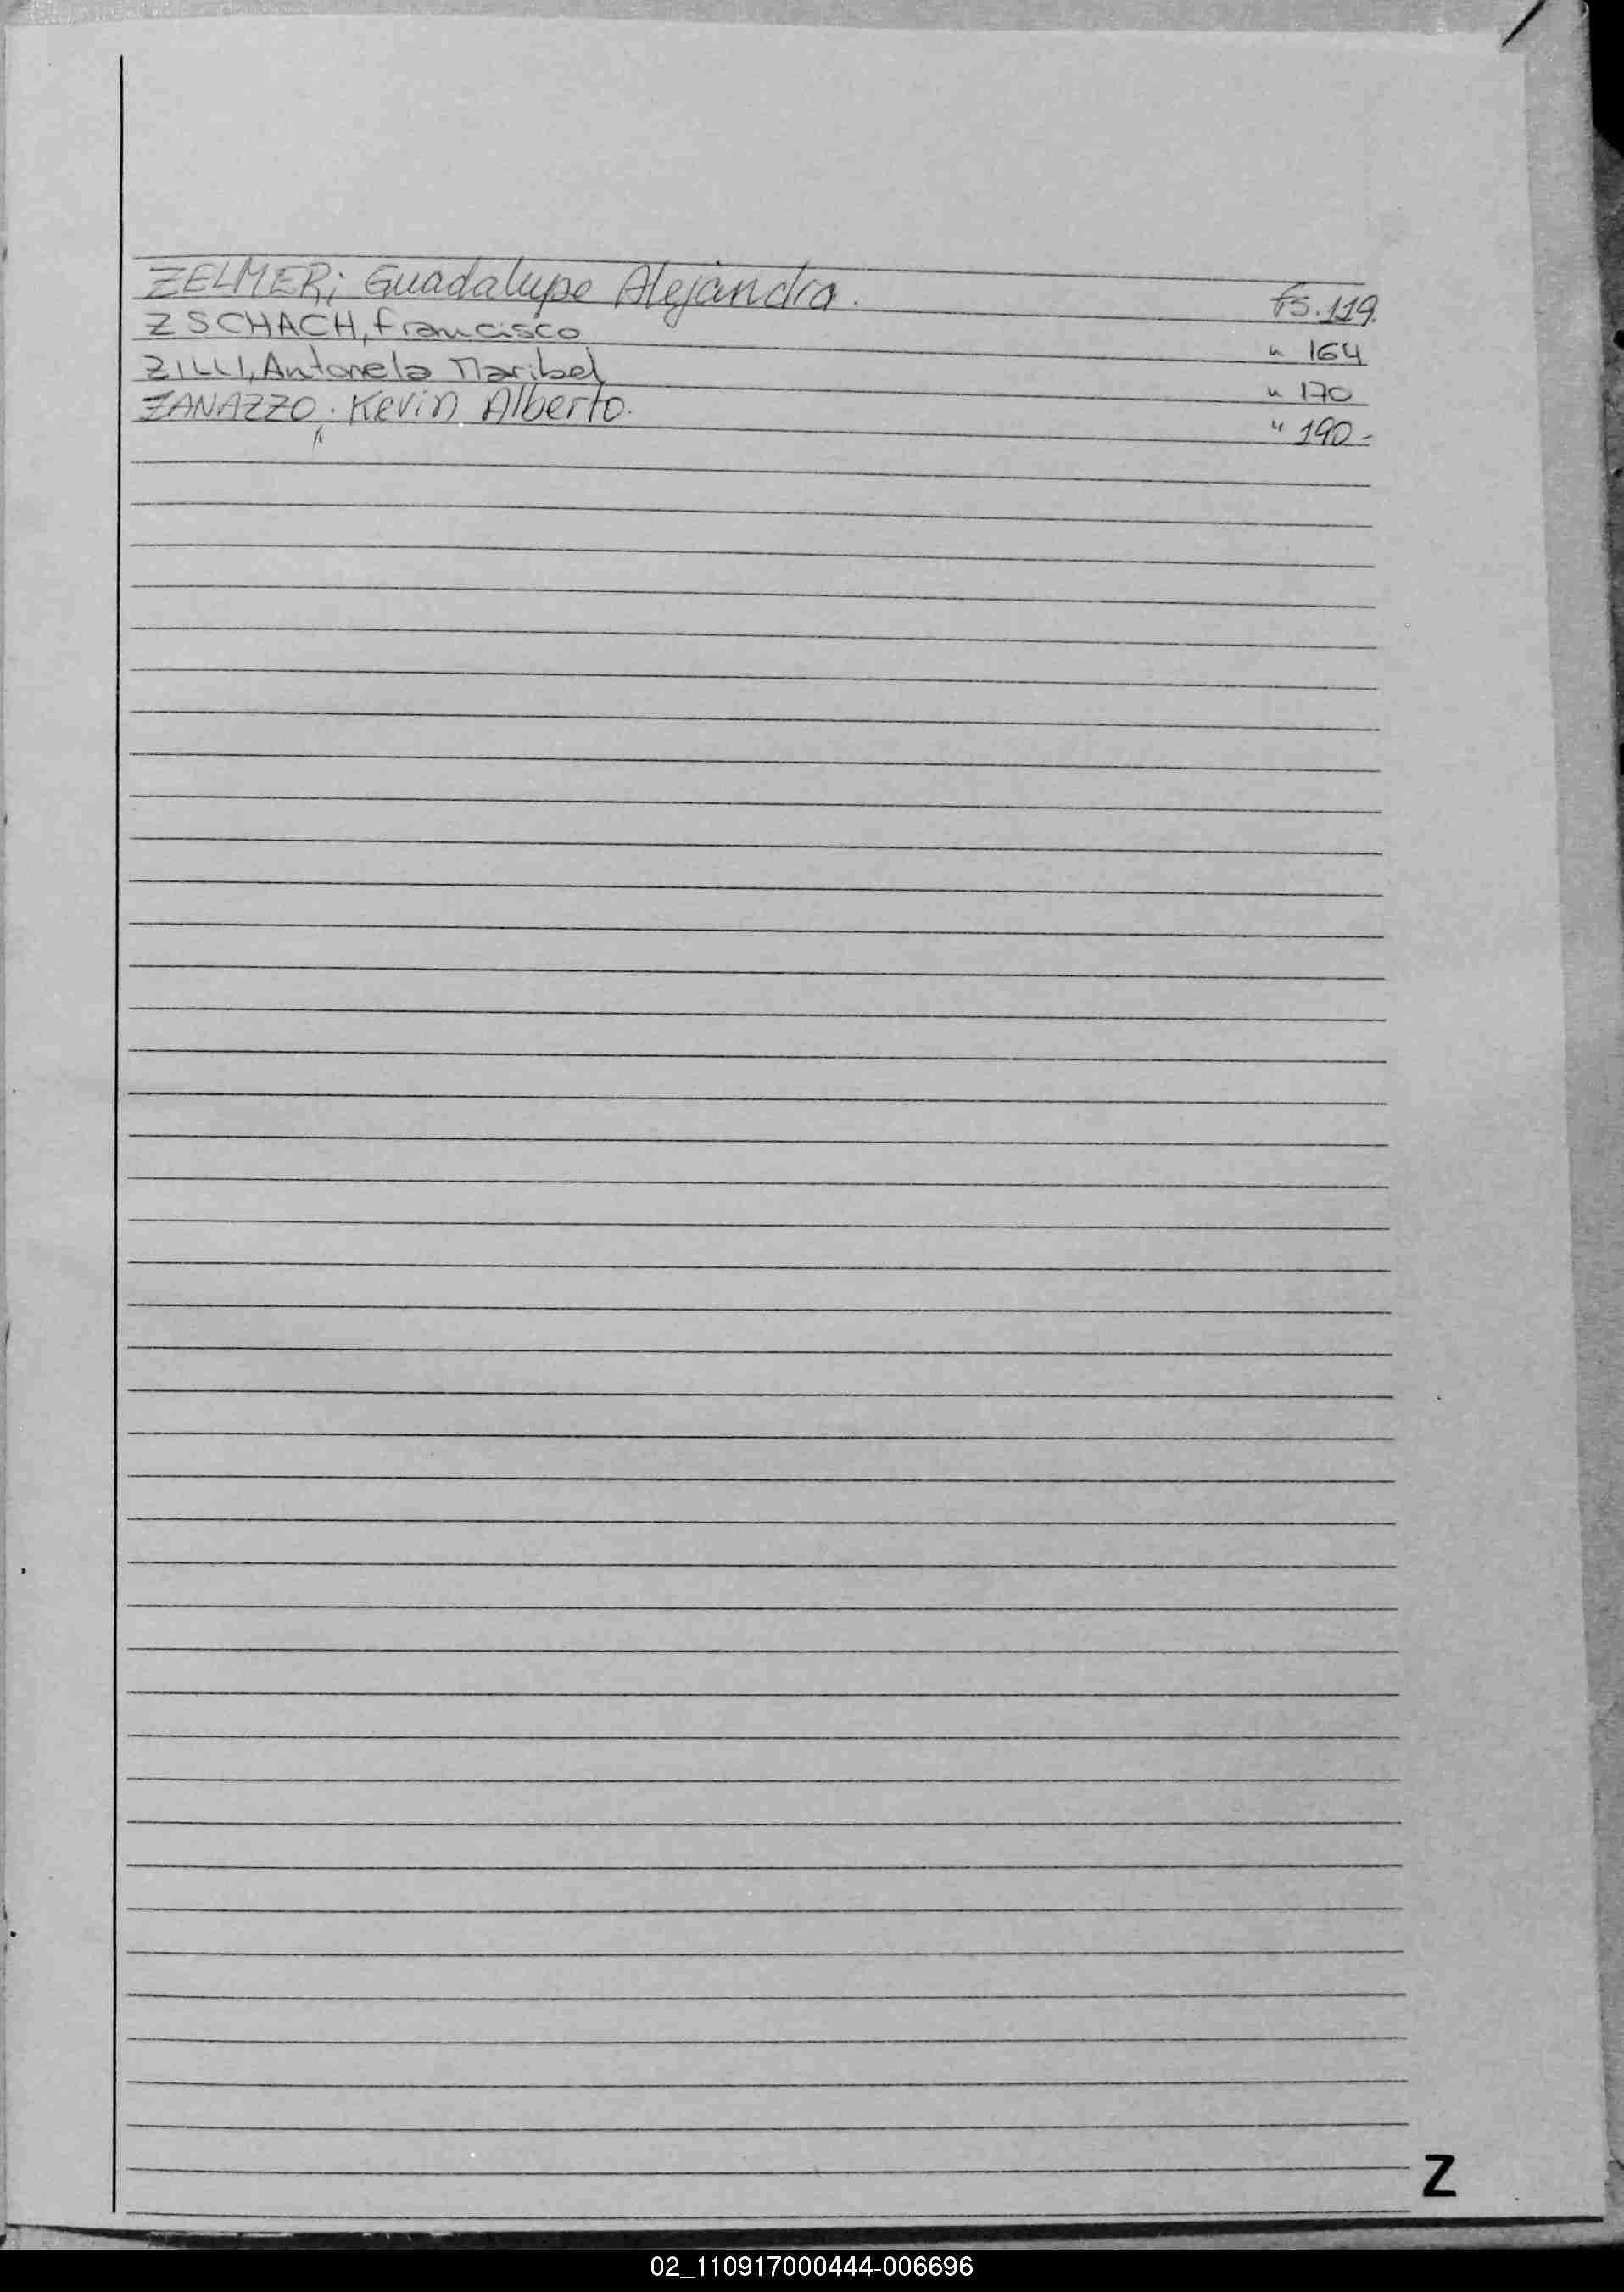 ZELMER; Guadalupe Alejandra. Fs. 119.
ZSCHACH, Francisco " 164
ZILLI, Antonela Maribel " 170
ZANAZZO; Kevin Alberto. " 190-
Z
02_110917000444-006696